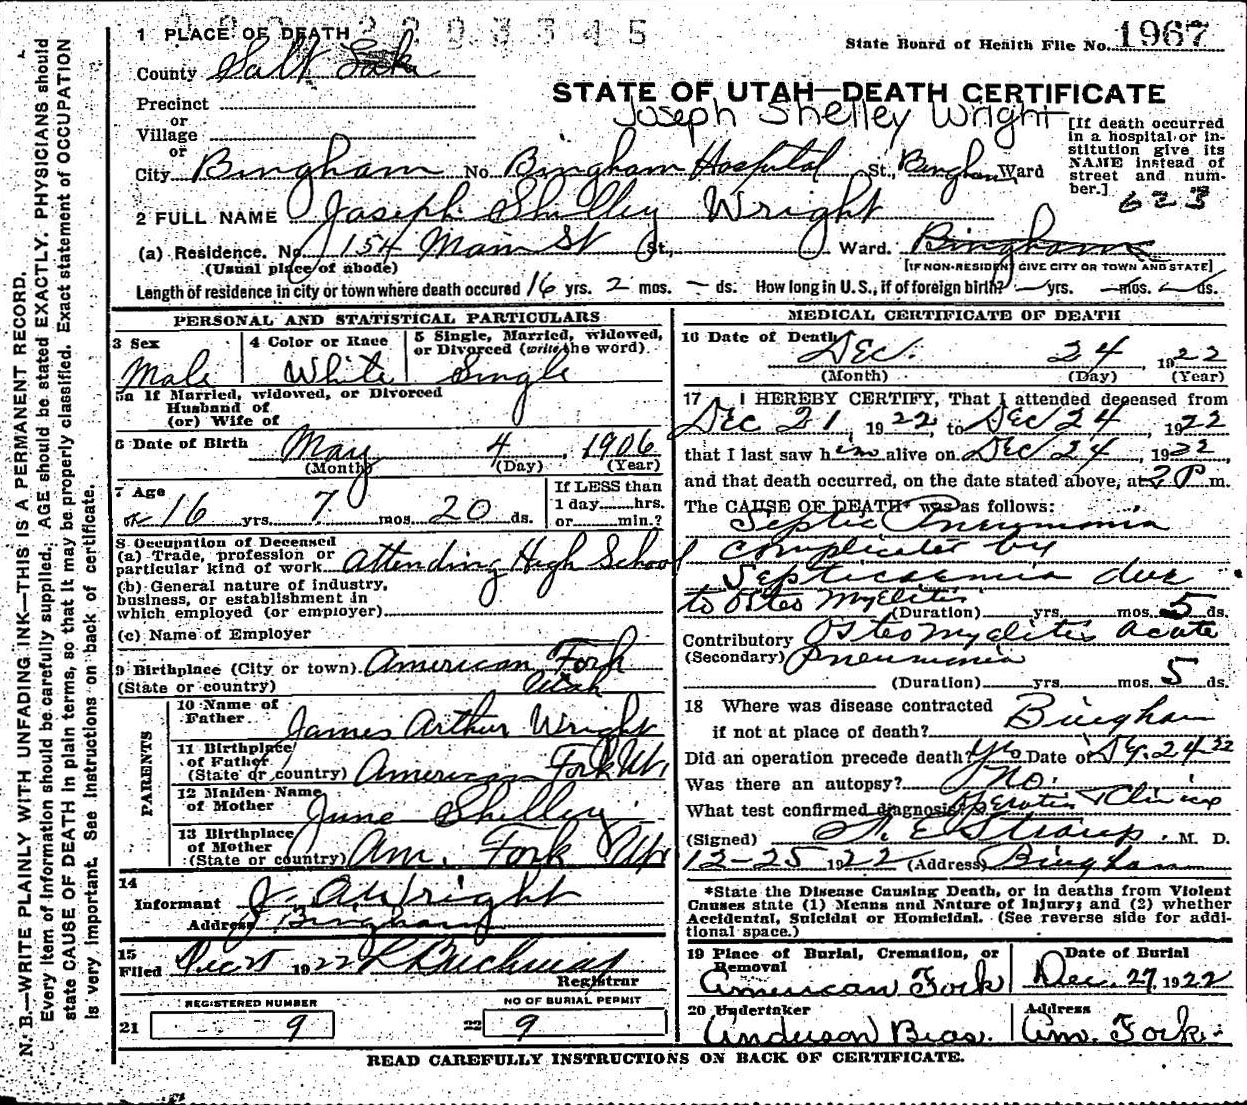 1 PLACE OF DEATH
State Board of Health File No. 1967
County Salt Lake
STATE OF UTAH—DEATH CERTIFICATE
Joseph Shelley Wright
Precinct
or
Village
or
City Bingham No. Bingham Hospital St., Bingham Ward
[If death occurred in a hospital or institution give its NAME instead of street and number.]
623
2 FULL NAME Joseph Shelley Wright
(a) Residence. No. 154 Main St St., Ward. Bingham
(Usual place of abode)
[IF NON-RESIDENT GIVE CITY OR TOWN AND STATE]
Length of residence in city or town where death occured 16 yrs. 2 mos. — ds. How long in U.S., if of foreign birth? — yrs. — mos. — ds.
PERSONAL AND STATISTICAL PARTICULARS
3 Sex
Male
4 Color or Race
White
5 Single, Married, widowed, or Divorced (write the word).
Single
5a If Married, widowed, or Divorced
Husband of
(or) Wife of
6 Date of Birth May 4, 1906
(Month) (Day) (Year)
7 Age
16 yrs. 7 mos. 20 ds.
If LESS than
1 day hrs.
or min.?
8 Occupation of Deceased
(a) Trade, profession or
particular kind of work Attending High School
(b) General nature of industry,
business, or establishment in
which employed (or employer)
(c) Name of Employer
9 Birthplace (City or town). American Fork
(State or country) Utah
PARENTS
10 Name of
Father James Arthur Wright
11 Birthplace
of Father
(State or country) American Fork Ut.
12 Maiden Name
of Mother June Shelley
13 Birthplace
of Mother
(State or country) Am. Fork Ut
14
Informant J. A. Wright
Address Bingham
15
Filed Dec 25 1922
Registrar
REGISTERED NUMBER
21 9
NO OF BURIAL PERMIT
22 9
MEDICAL CERTIFICATE OF DEATH
16 Date of Death Dec. 24 1922
(Month) (Day) (Year)
17 I HEREBY CERTIFY, That I attended deceased from
Dec 21, 1922, to Dec 24, 1922
that I last saw him alive on Dec 24, 1922,
and that death occurred, on the date stated above, at 2 P m.
The CAUSE OF DEATH* was as follows:
Septic Pneumonia
complicated by
Septicaemia due
to Osteo Myelitis
(Duration) yrs. mos. 5 ds.
Contributory Osteomyelitis acute
(Secondary) Pneumonia
(Duration) yrs. mos. 5 ds.
18 Where was disease contracted
if not at place of death? Bingham
Did an operation precede death? Yes Date of 24 22
Was there an autopsy? No.
What test confirmed diagnosis? Operation & Clinics
(Signed) F. E. Straup, M. D.
12-25 1922 (Address) Bingham
*State the Disease Causing Death, or in deaths from Violent
Causes state (1) Means and Nature of Injury; and (2) whether
Accidental, Suicidal or Homicidal. (See reverse side for additional space.)
19 Place of Burial, Cremation, or
Removal
American Fork
Date of Burial
Dec. 27, 1922
20 Undertaker
Anderson Bros.
Address
Am. Fork.
READ CAREFULLY INSTRUCTIONS ON BACK OF CERTIFICATE.
N. B.—WRITE PLAINLY WITH UNFADING INK—THIS IS A PERMANENT RECORD.
Every item of information should be carefully supplied. AGE should be stated EXACTLY. PHYSICIANS should
state CAUSE OF DEATH in plain terms, so that it may be properly classified. Exact statement of OCCUPATION
is very important. See instructions on back of certificate.